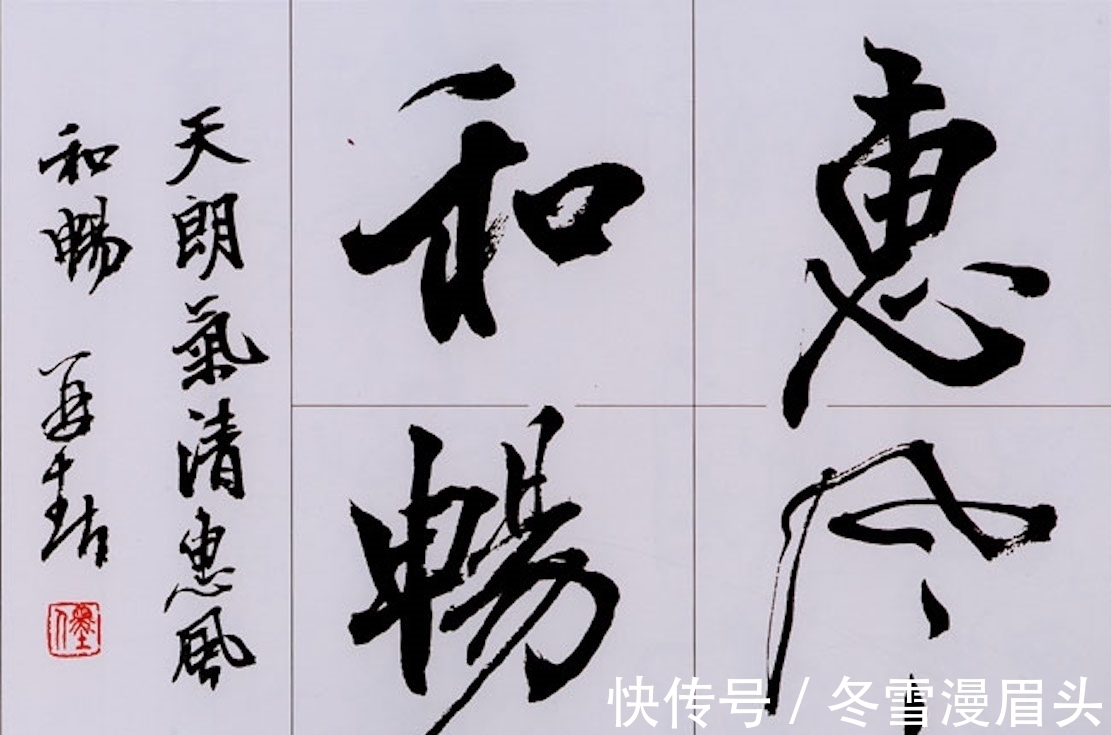 惠风
和暢
天朗氣清惠風
和暢
快传号 / 冬雪漫眉头